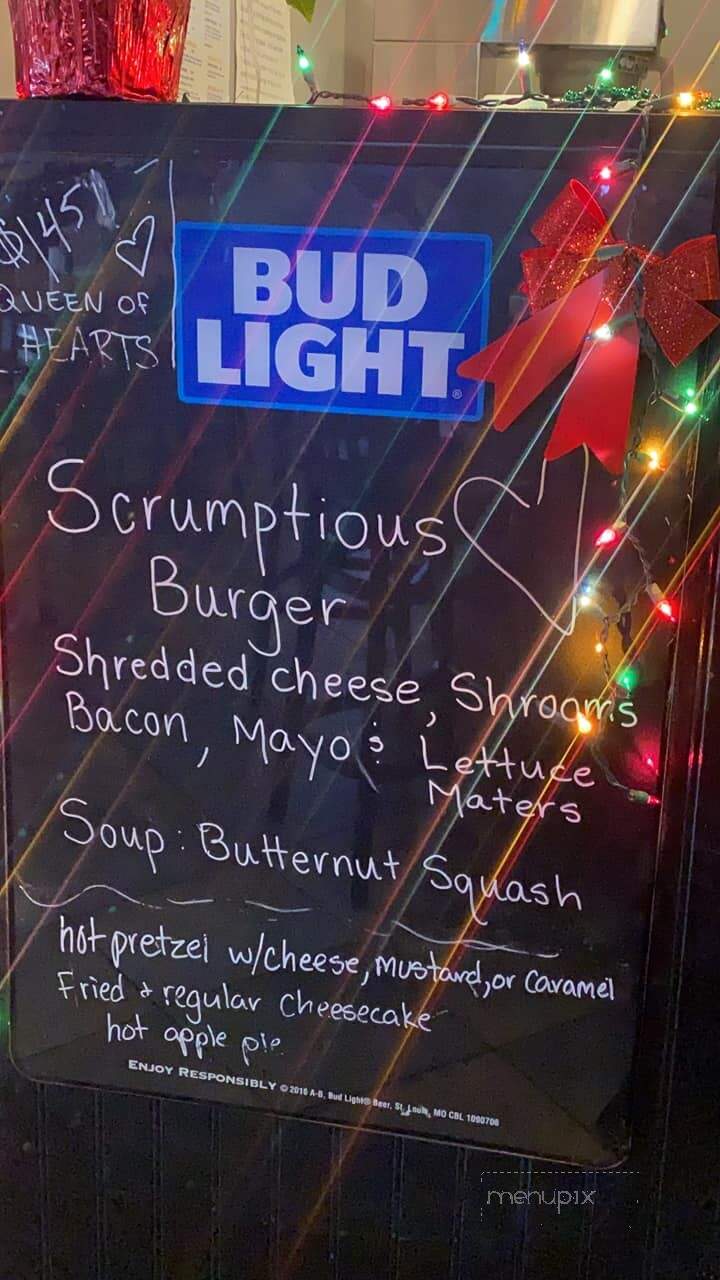 $1451
QUEEN OF
HEARTS
BUD
LIGHT®
Scrumptious
Burger
Shredded cheese, Shrooms
Bacon, Mayo & Lettuce
Maters
Soup: Butternut Squash
hot pretzel w/cheese, mustard, or Caramel
Fried & regular Cheesecake
hot apple pie
ENJOY RESPONSIBLY © 2016 A-B, Bud Light® Beer, St. Louis, MO CBL 1090706
menupix